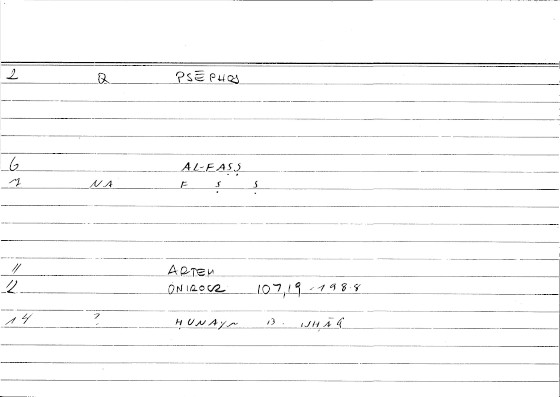 2 Q PSĒPHOS
6 AL-FAṢṢ
7 NA F Ṣ Ṣ
11 ARTEM
12 ONIROCR 107,19 - 198.8
14 ? ḤUNAYN B. ISḤĀQ